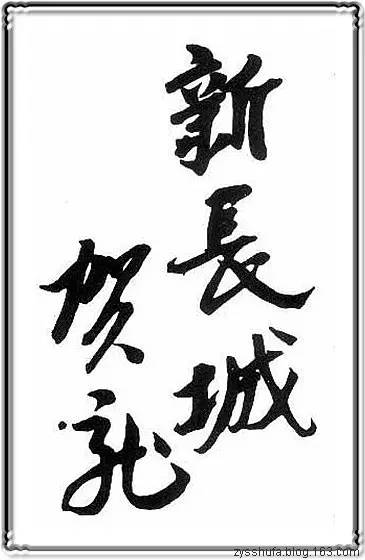 新長城
贺龙
zysshufa.blog.163.com